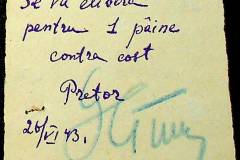 Se va elibera
pentru 1 pâine
contra cost
Pretor
26/VI 43.